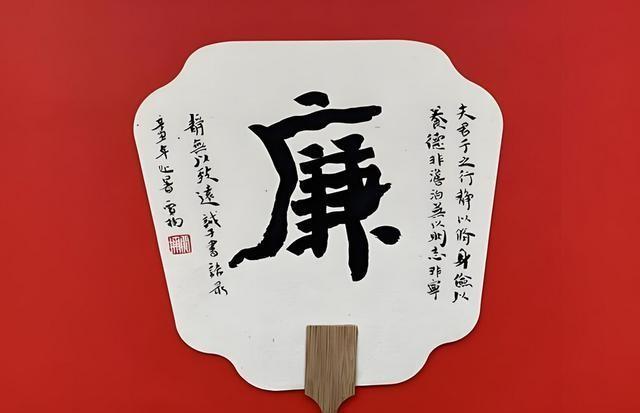 夫君子之行静以脩身儉以
養德非澹泊無以明志非寧
廉
靜無以致遠 誡子書語录
辛丑年